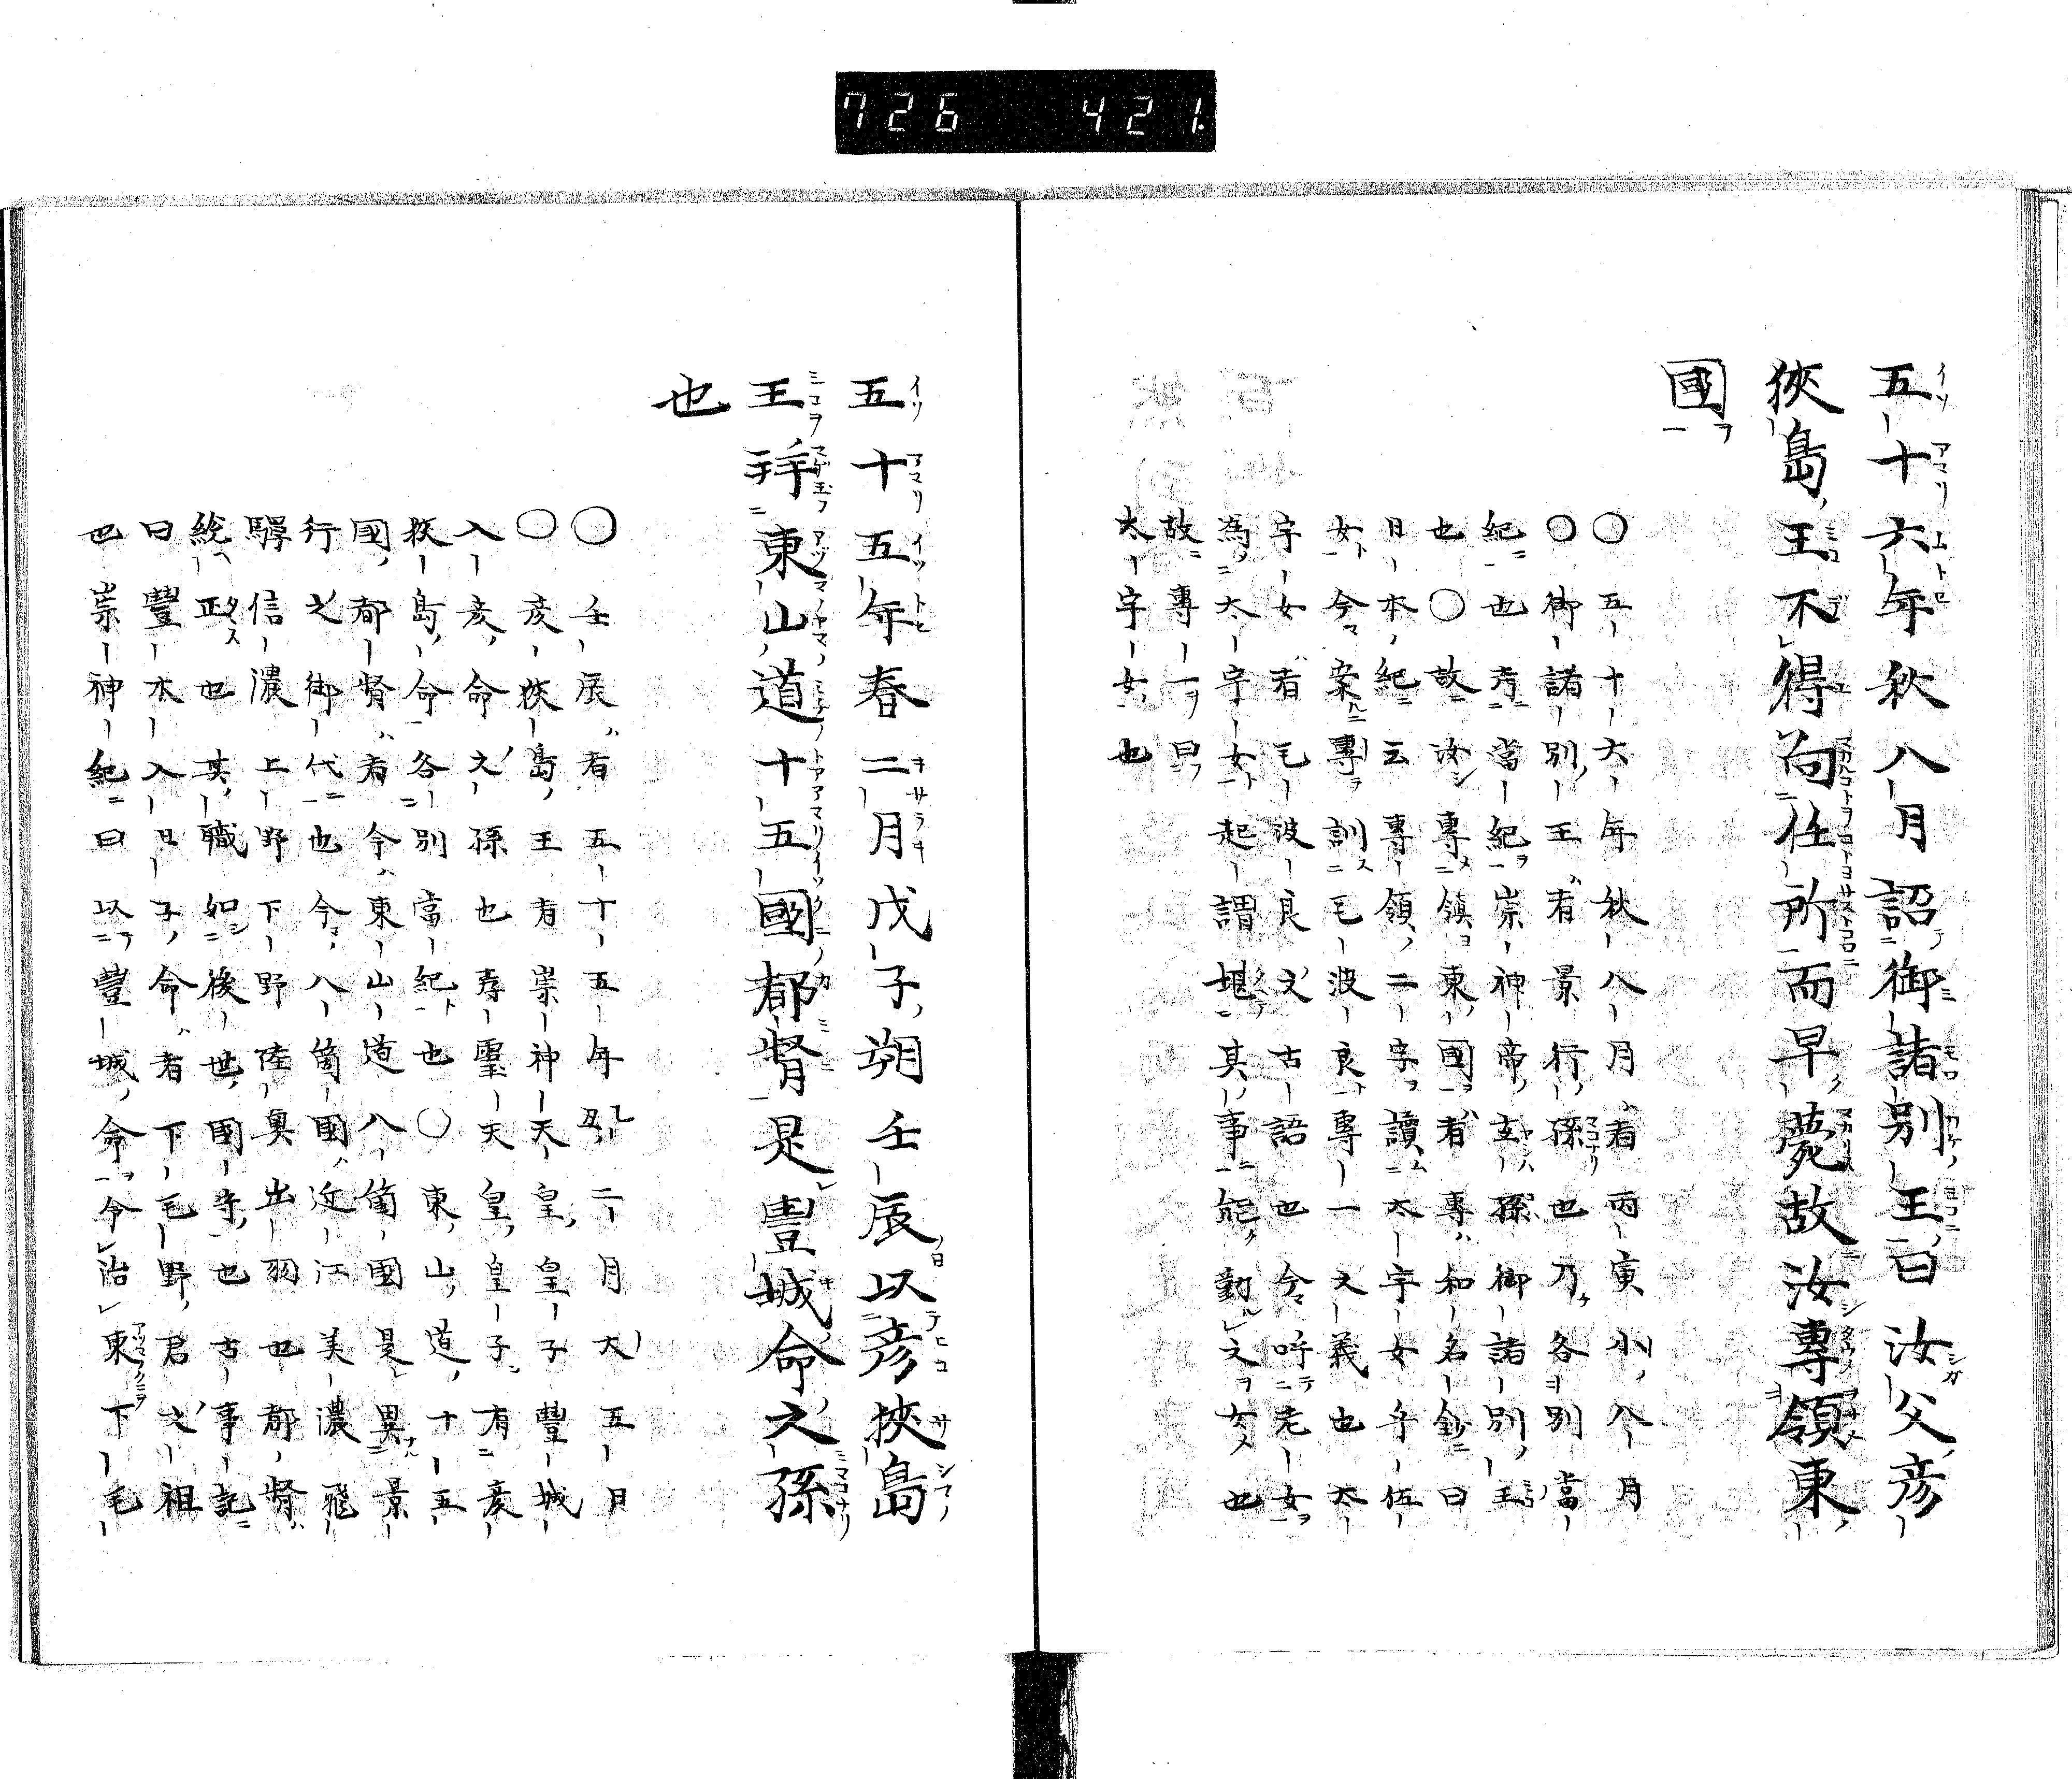 726 421.
五十六年秋八月詔御諸別王曰汝父彦
狹島王不得向任所而早薨故汝專領東
國
○五十六年秋八月者丙寅小八月
○御諸別王者景行孫也乃各別當
紀也考當紀崇神帝玄孫御諸別王
也○故汝專領東國者專和名鈔曰
日本紀云專領二字讀太宇女乎伍
女今案專訓毛波良專一之義也太
宇女者毛波良之古語也今呼老女
為太宇女起謂堪其事能勤之女也
故專一曰
太宇女也
五十五年春二月戊子朔壬辰以彦狹島
王拜東山道十五國都督是豐城命之孫
也
○壬辰者五十五年乙丑二月大五月
○彦狹島王者崇神天皇皇子豐城
入彦命之孫也孝靈天皇皇子有彦
狹島命各別當紀也○東山道十五
國都督者今東山道八箇國是異景
行之御代也今八箇國近江美濃飛
驒信濃上野下野陸奥出羽也都督
統正也其職如後世國守也古事記
曰豐木入日子命者下毛野君之祖
也崇神紀曰以豐城命令治東下毛